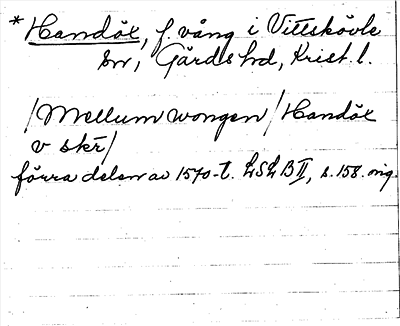 * Handöl, f. vång i Vittskövle
sn, Gärds hd, Krist. l.
/Mellum wongen/Handöl
v skr/
förra delen av 1570-t. LSLB II, s. 158. orig.